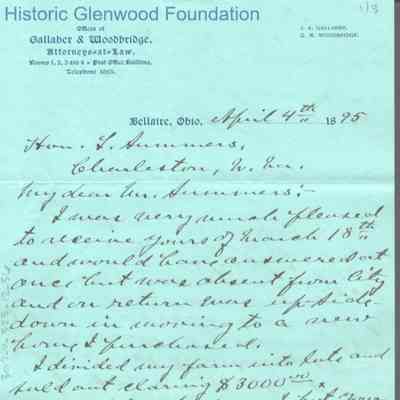 Historic Glenwood Foundation
1/3
Offices of
Gallaher & Woodbridge,
Attorneys-at-Law,
Rooms 1, 2, 3 and 4 Post Office Building,
Bellaire, Ohio, April 4th 1895
Hon. L. Summers,
Charleston, W. Va.
My dear Mr. Summers:-
I was very much pleased
to receive yours of March 18th
and would have answered at
once but was absent from City
and on return was up-side-
down in moving to a new
home I purchased.
I divided my farm into lots and
sold out clearing $3000.00